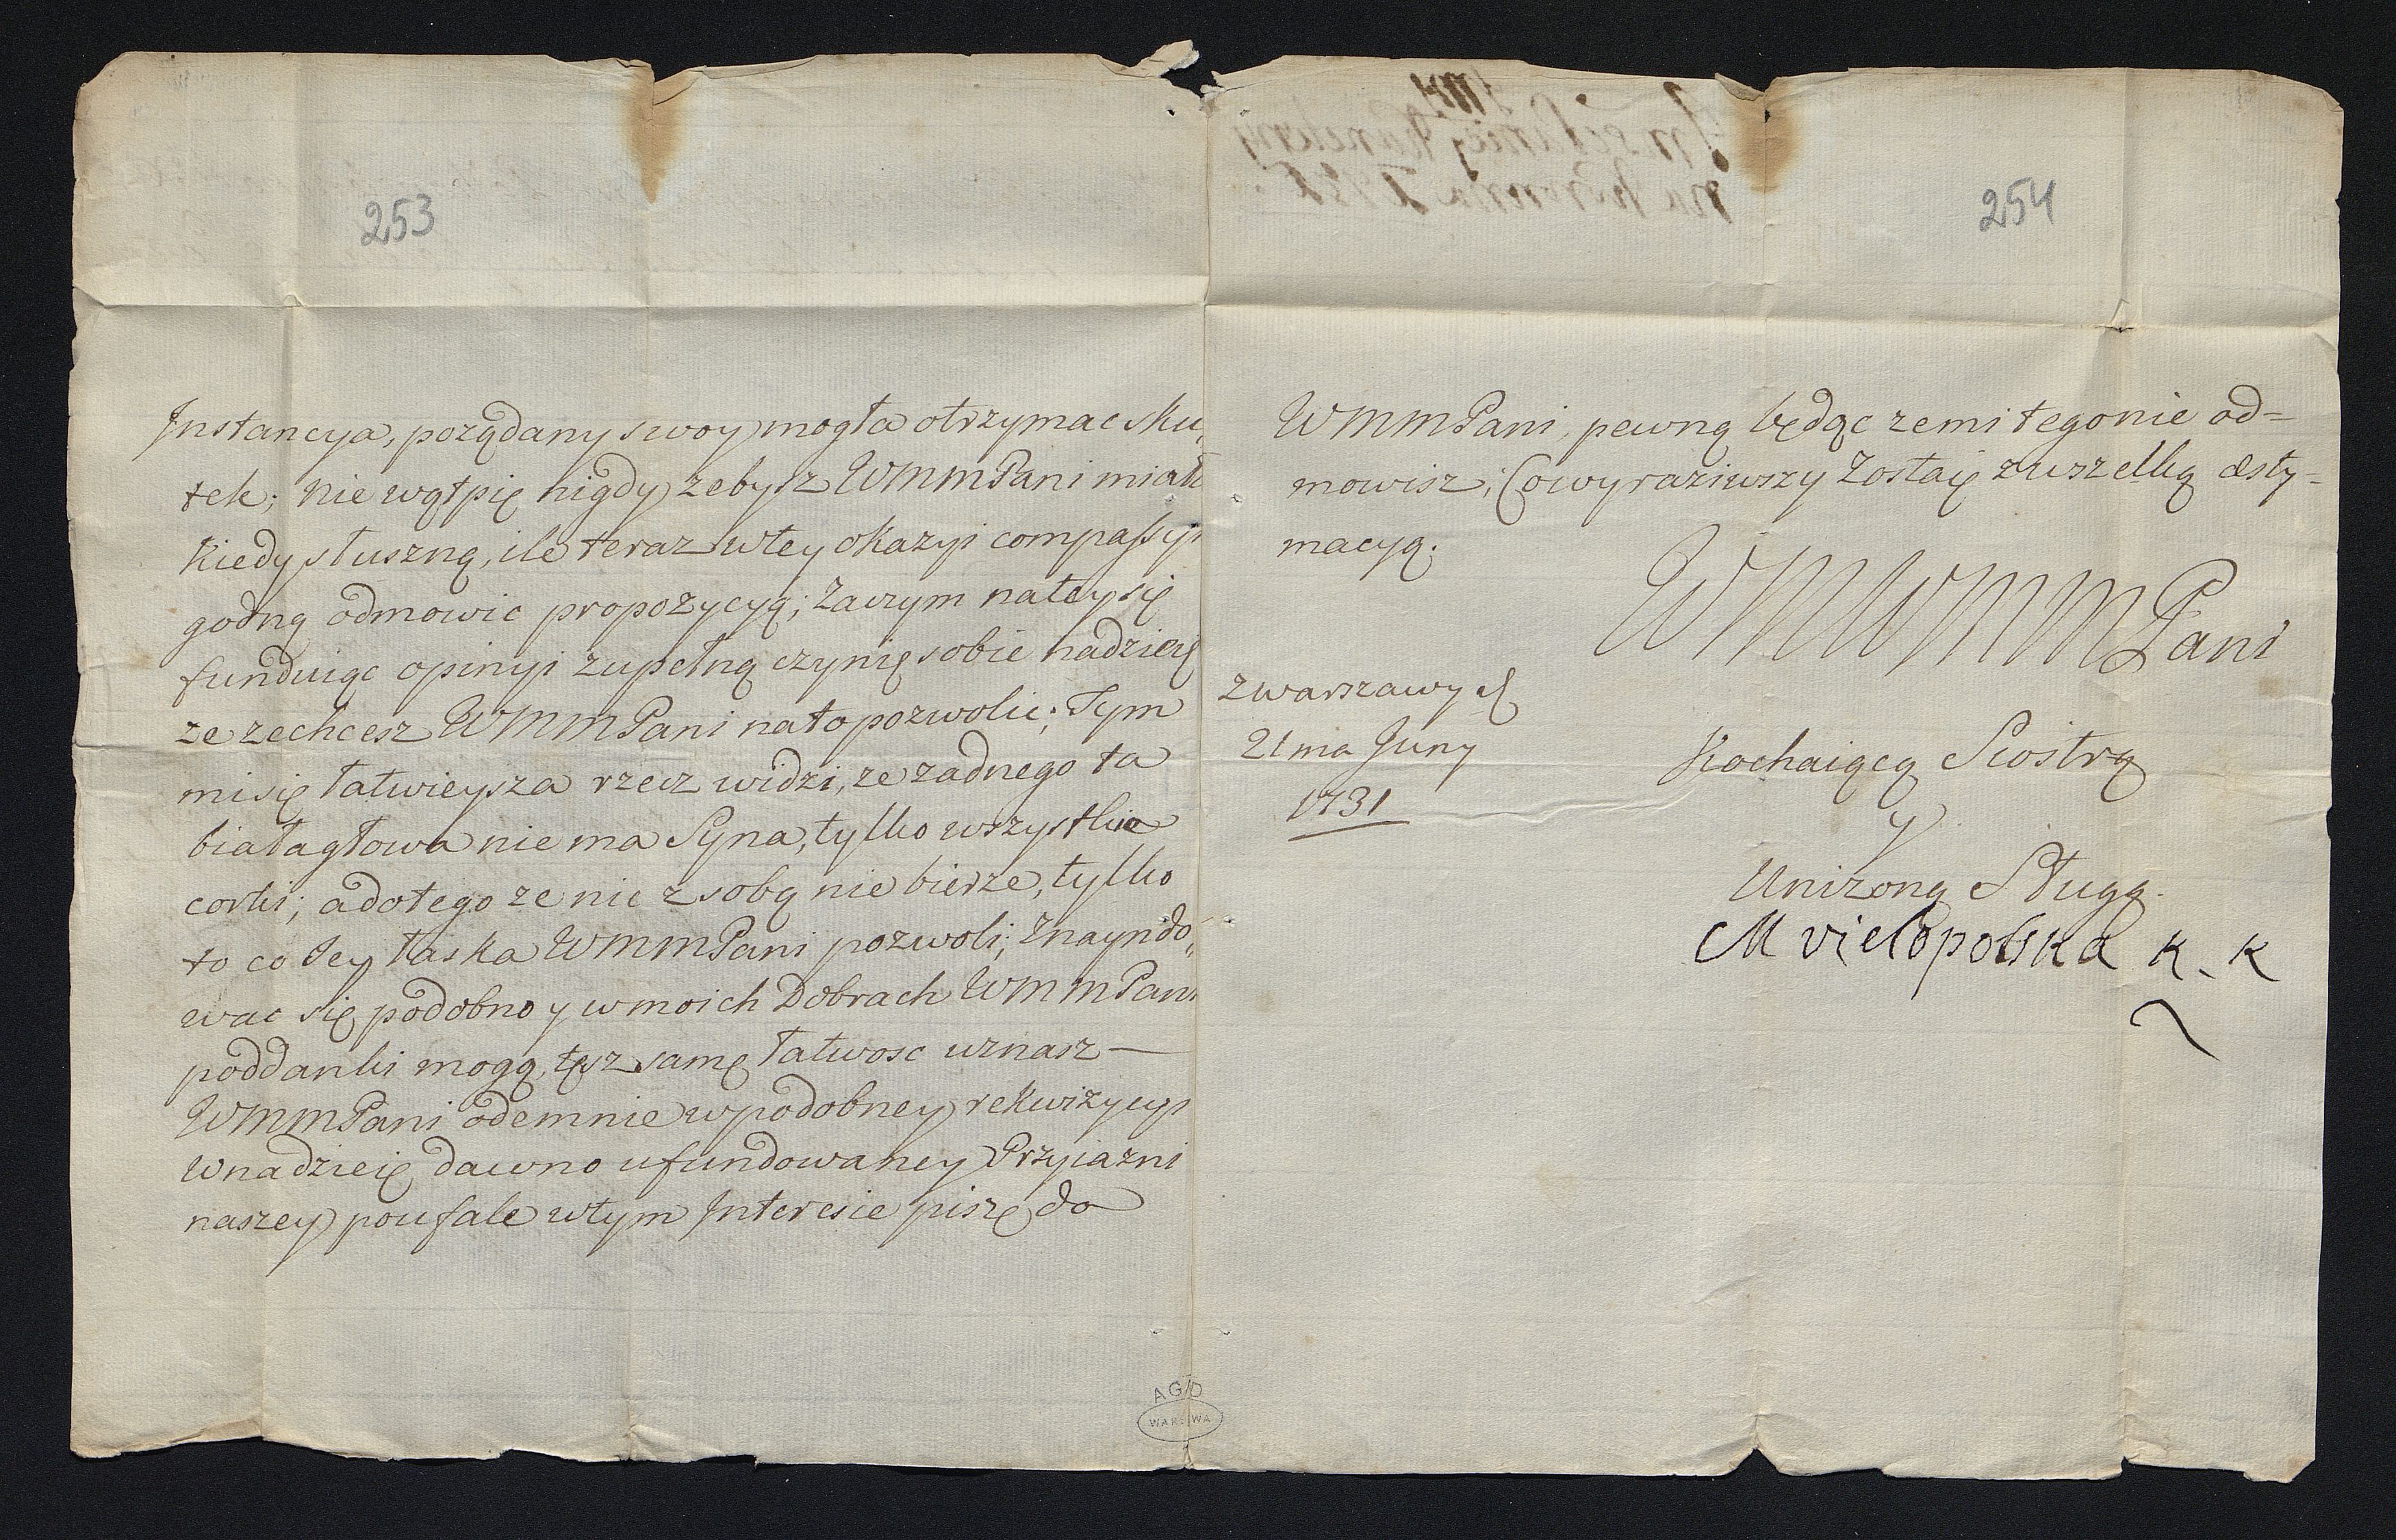 253
Instancya, pożądany swoy mogła otrzymac sku„
tek; nie wątpię nigdy zebysz WMMPani miała
kiedy słuszną, ile teraz wtey okazyi compassyi
godną odmowic propozycyą; Zawzym natey się
funduiąc opinyi zupełną czynię sobie nadzieię
ze zechcesz WMMPani nato pozwolic; Tym
misię łatwieysza rzecz widzi, ze zadnego ta
białagłowa nie ma Syna, tylko wszystkie
corki; adotego ze nic z sobą nie bierze, tylko
to co Jey łaska WMMPani pozwoli; Znaydo„
wac się podobno y w moich Dobrach WMMPani
poddanki mogą, tęsz samę łatwosc uznasz —
WMMPani odemnie w podobney rekwizycyi
Wnadzieię dawno ufundowaney Przyiazni
naszey poufale wtym Interesie piszę do
254
WMMPani, pewną będąc zemi tego nie od=
mowisz; Co wyraziwszy Zostaię zuszelką æsty=
macyą.
WMWMMPani
z warszawy d
21ma Juny
1731
Kochaiącą Siostrą
y
Unizoną Sługą.
M vielopolska K. K
AGAD
WARSZAWA